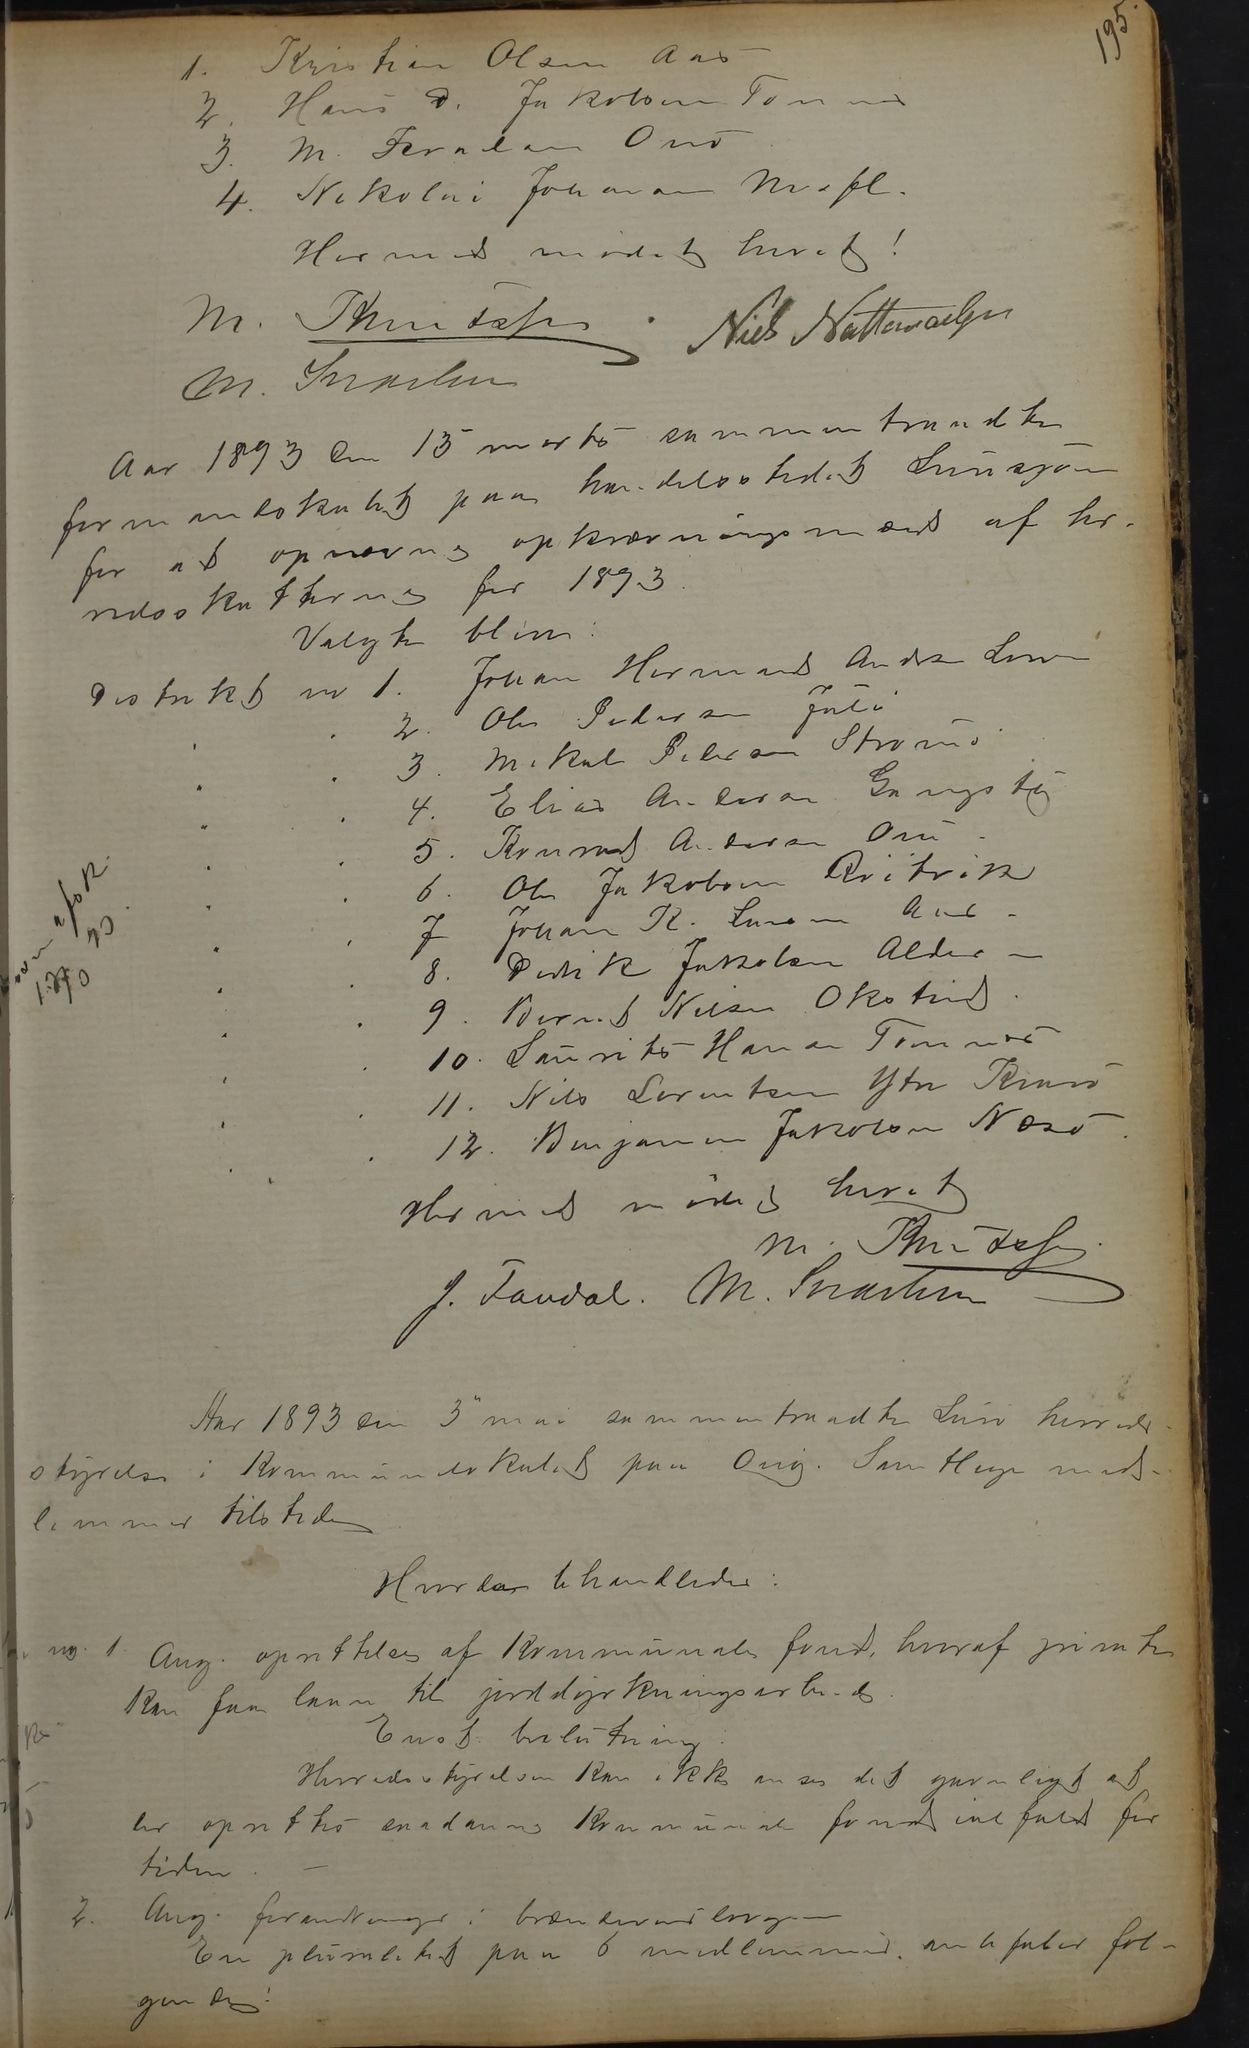 195.
1. Kristian Olsen Aas
2. Hans D. Jakobsen Tonnes
3. M. Onø
4. Nikolai Johansen
Hermed mødet hævet!
M. Niels Nattervaelger
M.
Aar 1893 den 15 marts sammentraadte
formandskabet paa handelsstedet Lurøsjøen
for at opnævne opkrævningsmænd af her-
redsskatterne for 1893.
Valgte blev:
Distrikt no 1. Johan Hermand Andersen Lurø
2. Ole Pedersen
3. Mikal Pedersen Stromø
4. Elias Andersen
5. Konrad Andersen Onø
6. Ole Jakobsen Kvitvik
7 Johan K. Larsen Aas
8. Didrik Jakobsen Alderen
9. Bernt Nilsen Okstind
10. Laurits Hansen Tonnes
11. Nils Lorentsen Ytre Kvarø
12. Benjamin Jakobsen Nesø
Hermed mødet hævet
M.
J. Favdal. M.
Aar 1893 den 3" mai sammentraadte Lurø herreds-
styrelse i kommunelokalet paa Onø. Samtlige med-
lemmer tilstede
Hvorda behandledes:
no. 1. Ang. oprettelse af kommunale fond, hvoraf private
kan faa laan til jorddyrkningsarbeide.
Enst. beslutning:
Herredsstyrelsen kan ikke anse det gavnligt at
der oprettes saadanne kommunale fond ialfald for
tiden. —
2. Ang. forandringer i brændevinsloven
En pluralitet paa 6 medlemmer anbefaler føl-
gende: